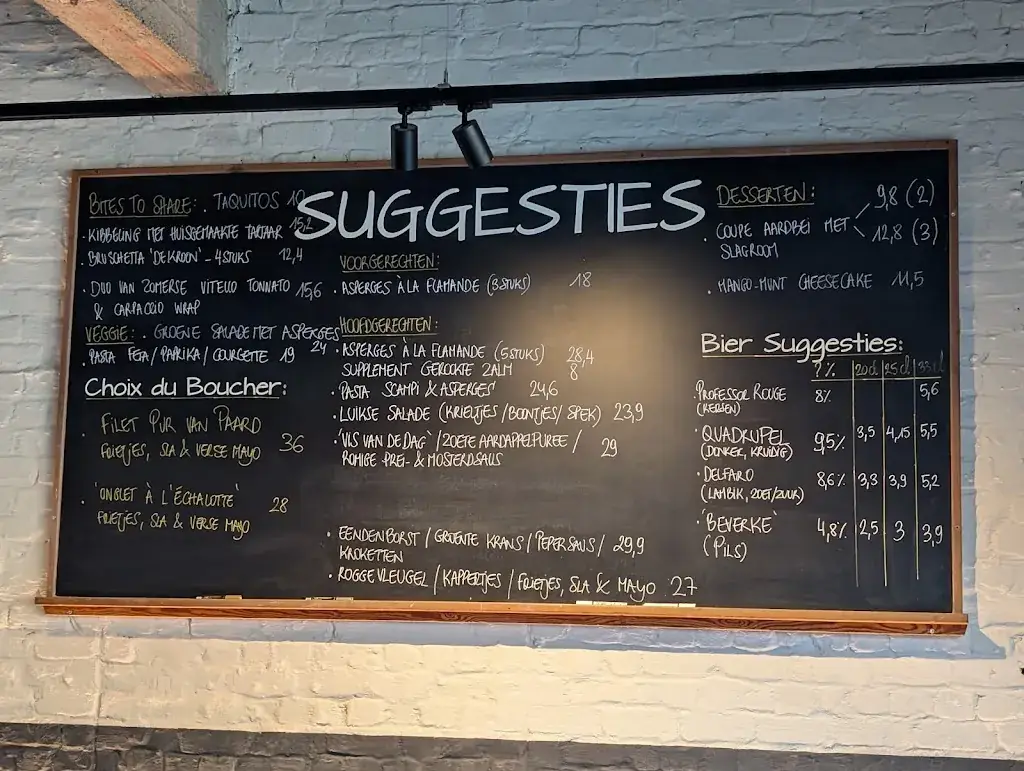 SUGGESTIES
BITES TO SHARE: . TAQUITOS
· KIBBELING MET HUISGEMAAKTE TARTAAR 15,2
· BRUSCHETTA 'DE KROON' - 4 STUKS 12,4
· DUO VAN ZOMERSE VITELLO TONNATO 15,6
& CARPACCIO WRAP
VEGGIE: . GROENE SALADE MET ASPERGES 24
· PASTA FETA / PAPRIKA / COURGETTE 19
Choix du Boucher:
· FILET PUR VAN PAARD
FRIETJES, SLA & VERSE MAYO 36
· 'ONGLET À L'ÉCHALOTTE'
FRIETJES, SLA & VERSE MAYO 28
VOORGERECHTEN:
· ASPERGES À LA FLAMANDE (3 STUKS) 18
HOOFDGERECHTEN:
· ASPERGES À LA FLAMANDE (5 STUKS) 28,4
SUPPLEMENT GEROOKTE ZALM 8
· PASTA SCAMPI & ASPERGES 24,6
· LUIKSE SALADE (KRIELTJES / BOONTJES / SPEK) 23,9
· 'VIS VAN DE DAG' / ZOETE AARDAPPELPUREE / 29
ROMIGE PREI- & MOSTERDSAUS
· EENDENBORST / GROENTE KRANS / PEPERSAUS / 29,9
KROKETTEN
· ROGGEVLEUGEL / KAPPERTJES / FRIETJES, SLA & MAYO 27
DESSERTEN:
· COUPE AARDBEI MET 9,8 (2)
SLAGROOM 12,8 (3)
· MANGO-MUNT CHEESECAKE 11,5
Bier Suggesties:
? % 20 cl 25 cl 33 cl
· PROFESSOR ROUGE 8% 5,6
(KERSEN)
· QUADRUPEL 9,5% 3,5 4,15 5,5
(DONKER, KRUIDIG)
· DELFARO 8,6% 3,3 3,9 5,2
(LAMBIK, ZOET/ZUUR)
· 'BEVERKE' 4,8% 2,5 3 3,9
(PILS)